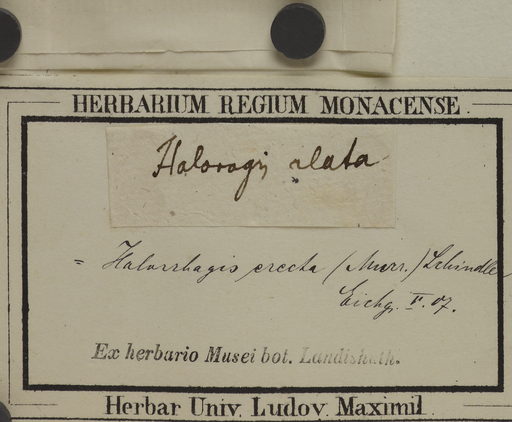 HERBARIUM REGIUM MONACENSE
Haloragis alata
= Halorrhagis erecta (Murr.) Schindler
Eichg. V. 07.
Ex herbario Musei bot. Landishuth.
Herbar Univ. Ludov. Maximil.